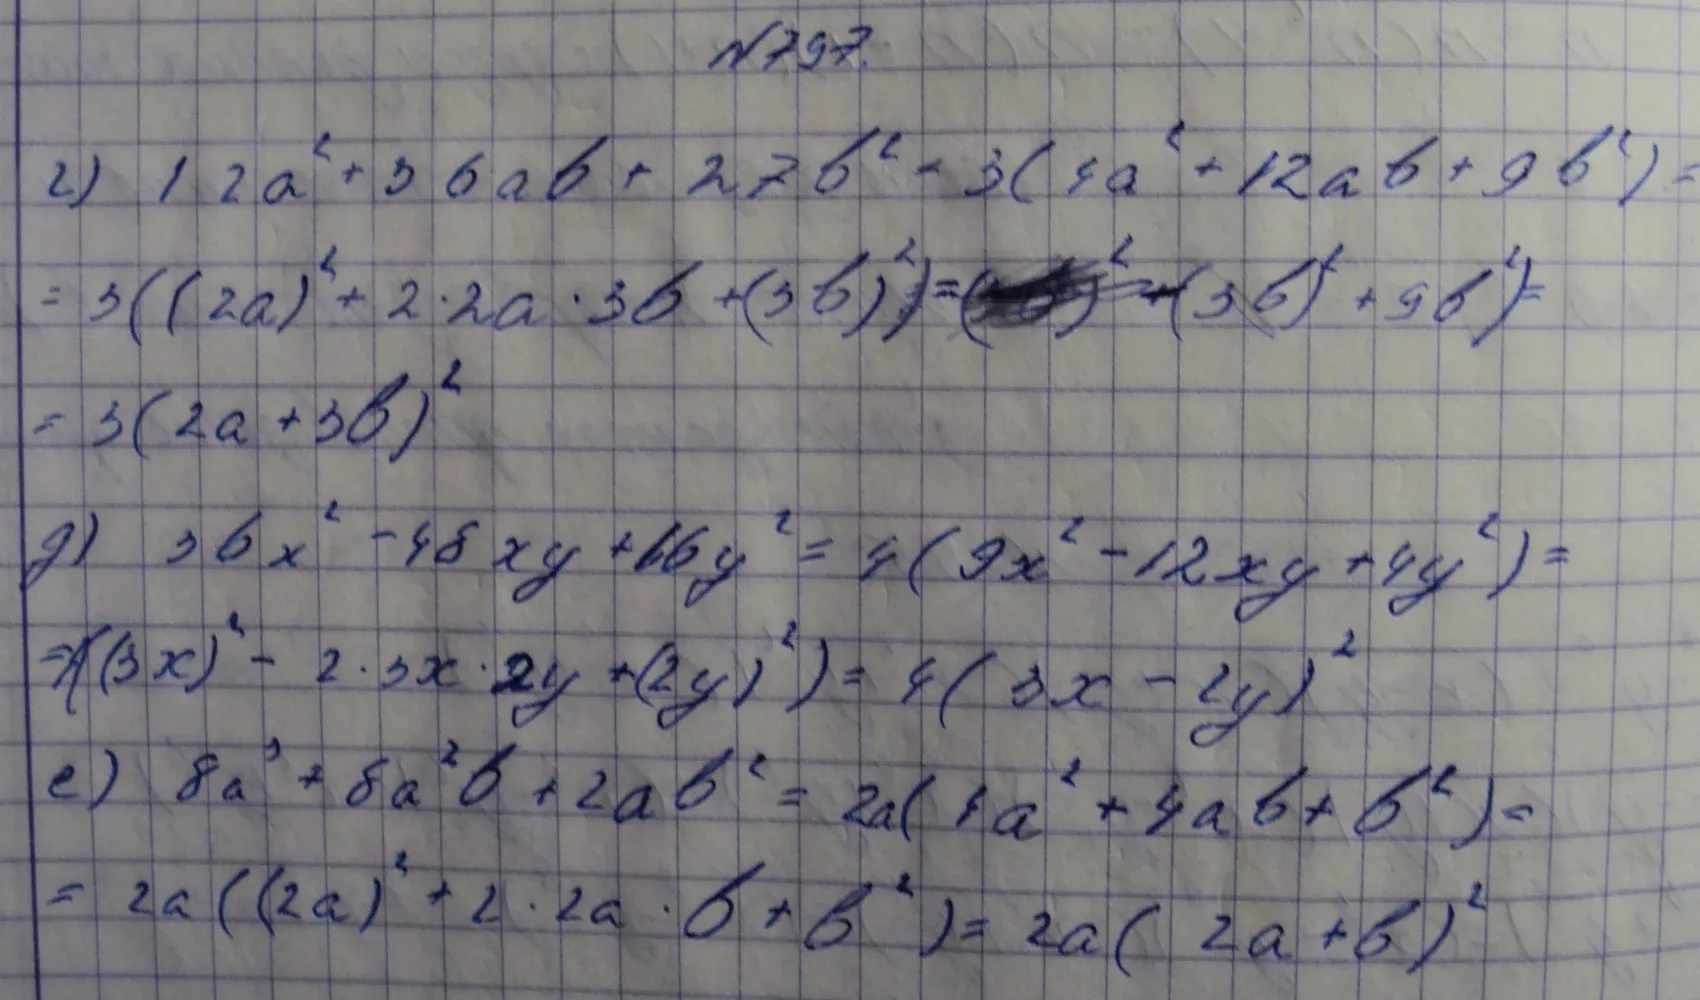 N797.
г) 12a² + 36ab + 27b² = 3(4a² + 12ab + 9b²) =
= 3((2a)² + 2·2a·3b + (3b)²) = ( )² + (3b)² + 9b²) =
= 3(2a + 3b)²
д) 36x² - 48xy + 16y² = 4(9x² - 12xy + 4y²) =
= 4((3x)² - 2·3x·2y + (2y)²) = 4(3x - 2y)²
е) 8a³ + 8a²b + 2ab² = 2a(4a² + 4ab + b²) =
= 2a((2a)² + 2·2a·b + b²) = 2a(2a + b)²